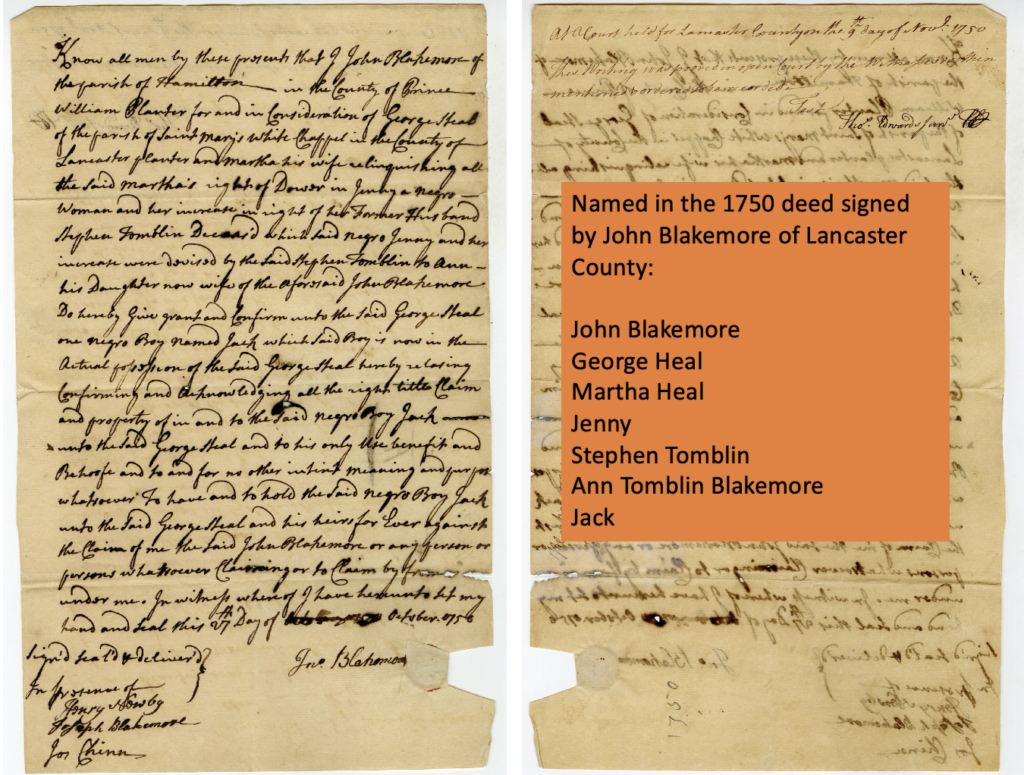 Know all men by these presents that I John Blakemore of
the parish of Hamilton in the County of Prince
William Planter for and in Consideration of George Heal
of the parish of Saint Marys White Chappel in the County of
Lancaster planter and Martha his wife relinquishing all
the said Martha's right of Dower in Jenny a negro
Woman and her increase in right of her Former Husband
Stephen Tomblin Deceas'd which said negro Jenny and her
increase were devised by the said Stephen Tomblin to Ann
his Daughter now wife of the aforesaid John Blakemore
Do hereby Give grant and Confirm unto the said George Heal
one negro Boy named Jack which said Boy is now in the
Actual possession of the said George Heal hereby relasing
Confirming and Acknowledging all the right title Claim
and property of in and to the said negro Boy Jack
unto the said George Heal and to his only Use benefit and
Behoofe and to and for no other intent meaning and purpos
whatsoever To have and to hold the said negro Boy Jack
unto the said George Heal and his heirs for Ever against
the Claim of me the said John Blakemore or any person or
persons whatsoever Claiming or to Claim by from
under me. In witness whereof I have hereunto set my
hand and seal this 27th Day of October. 1750
Sign'd seal'd & deliver'd
Jno. Blakemore
In presence of
Henry Newby
Joseph Blakemore
Jos Chinn
At a Court held for Lancaster County on the 9th day of Novr. 1750
this Writing was proved in open Court by the
mentioned & ordered to be recorded
Test
Thos. Edwards Junr.
Named in the 1750 deed signed
by John Blakemore of Lancaster
County:
John Blakemore
George Heal
Martha Heal
Jenny
Stephen Tomblin
Ann Tomblin Blakemore
Jack
1750